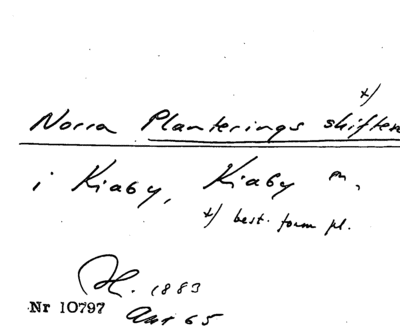 x)
Norra Planterings skiften
i Kiaby, Kiaby sn,
x) best. form pl.
1883
Nr 10797
65